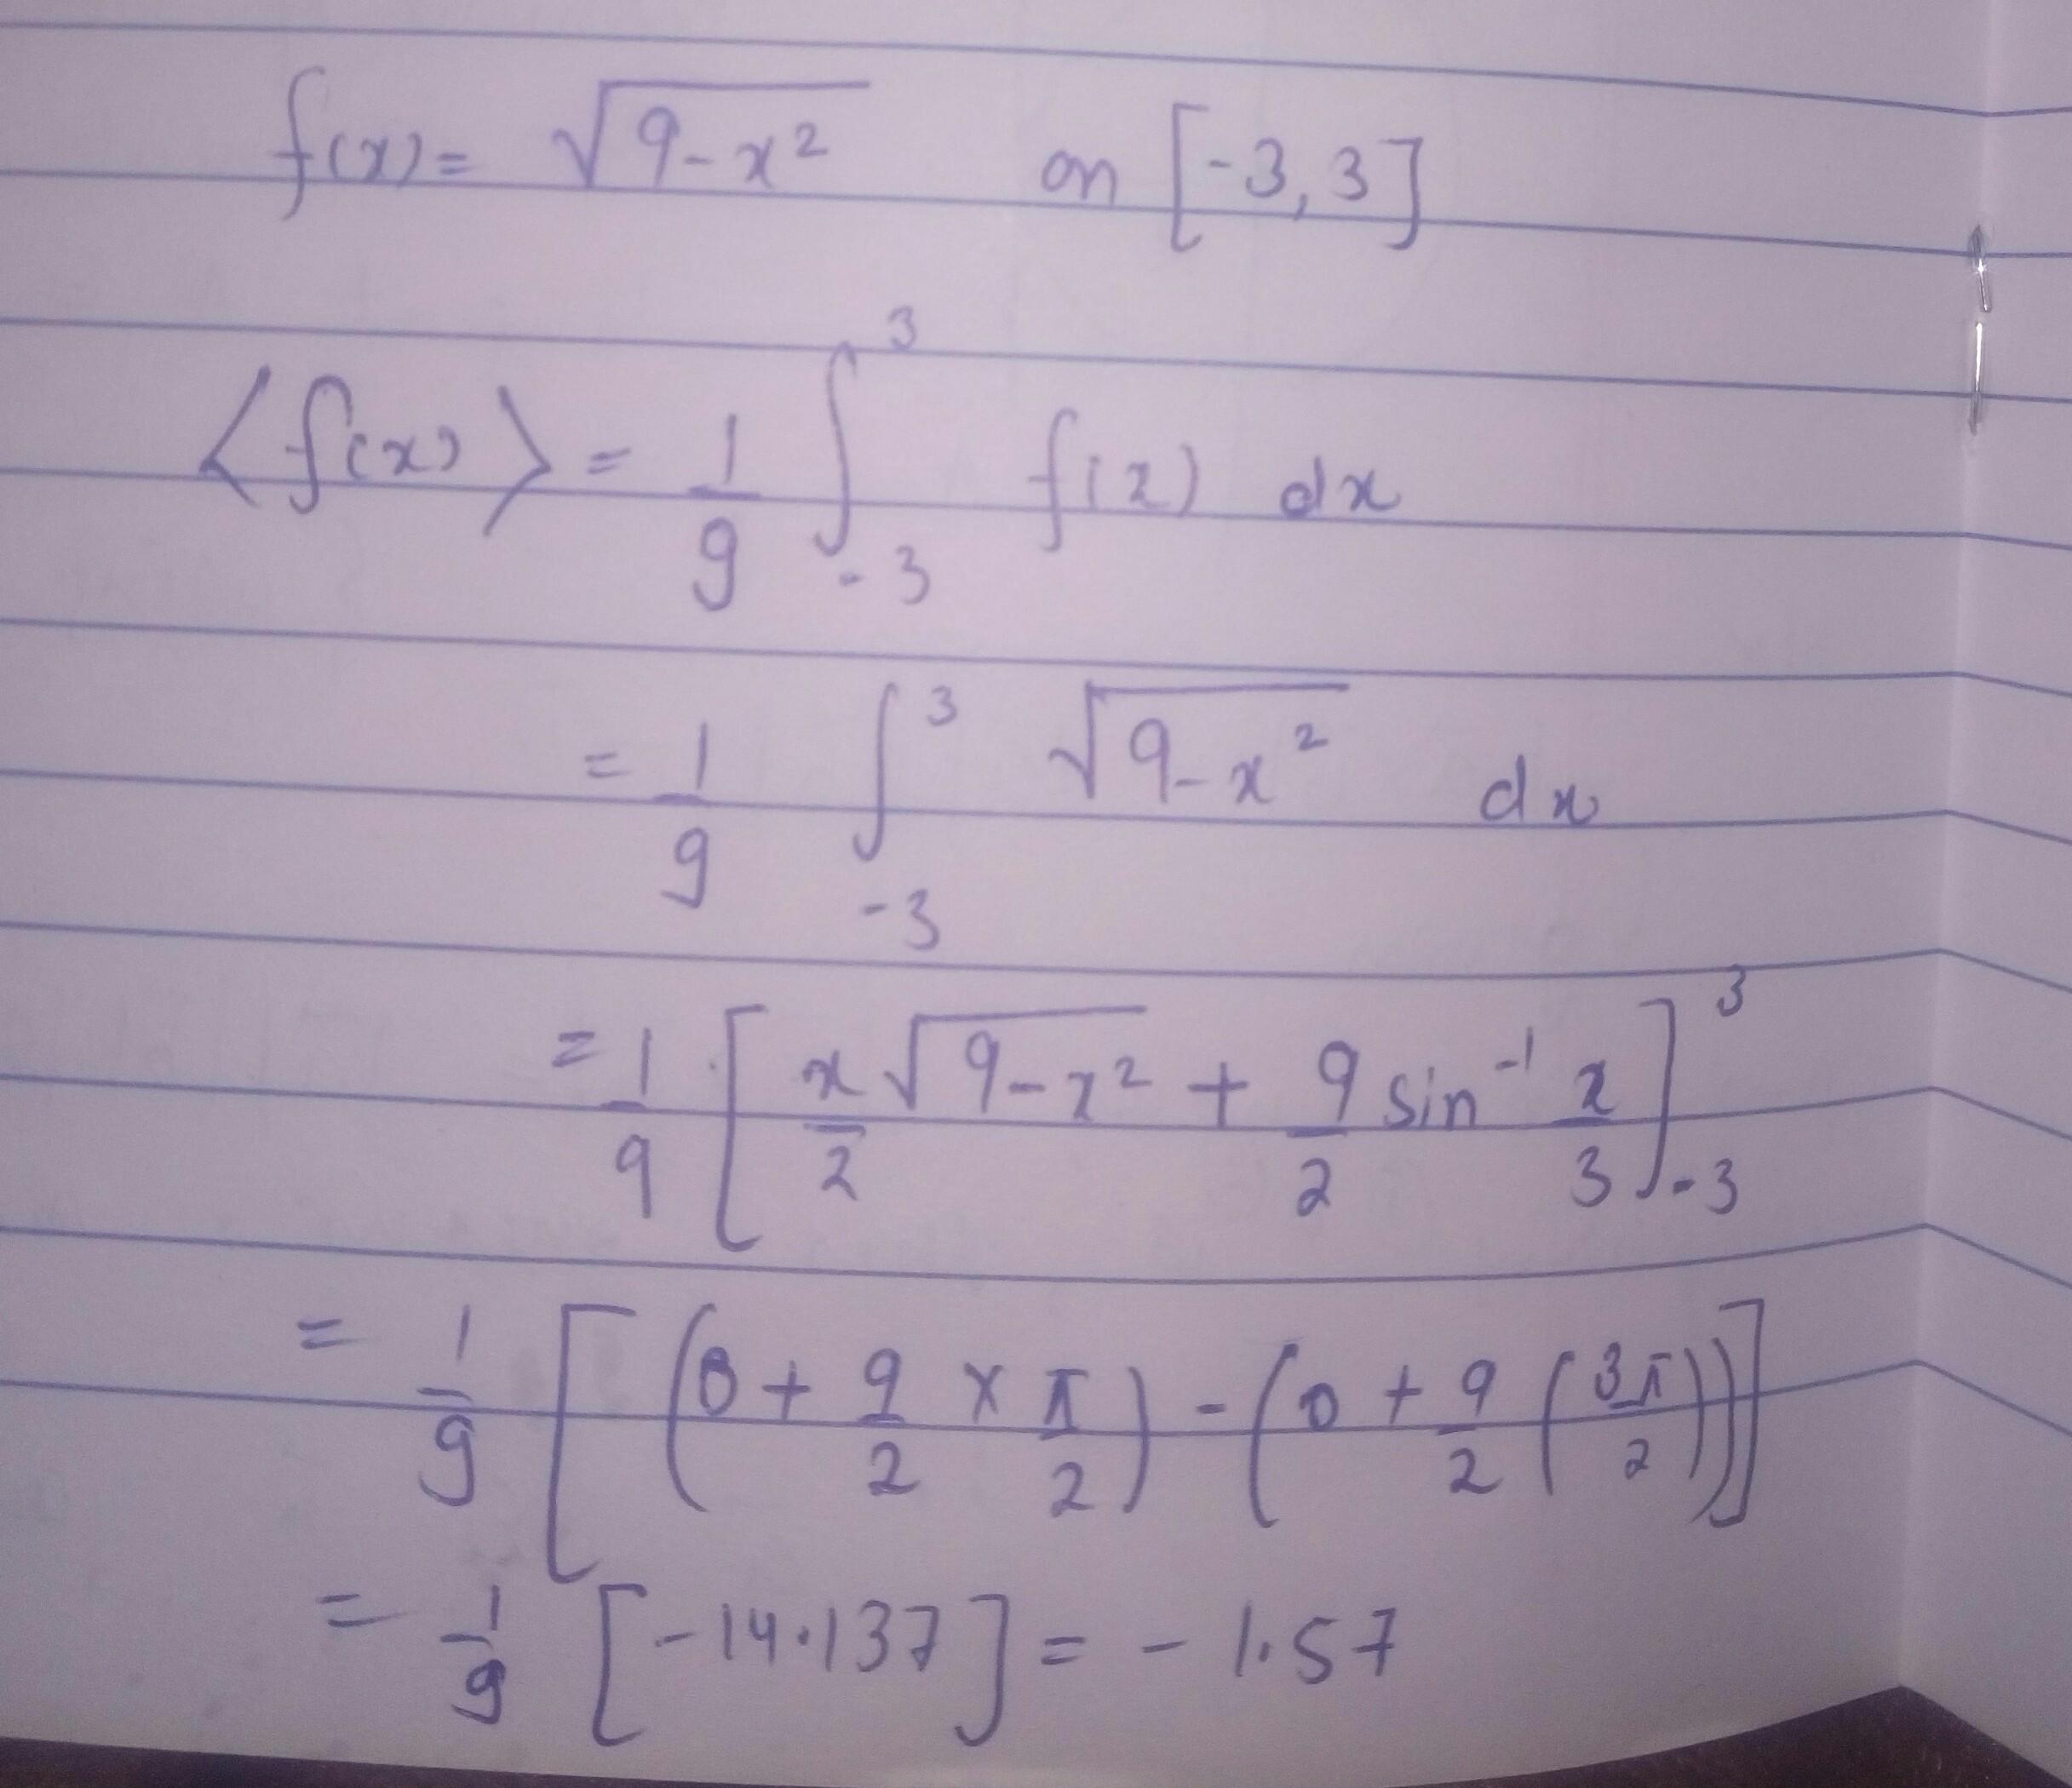 f(x) = √(9-x²) on [-3, 3]
⟨f(x)⟩ = 1/9 ∫_{-3}^{3} f(x) dx
= 1/9 ∫_{-3}^{3} √(9-x²) dx
= 1/9 [x/2 √(9-x²) + 9/2 sin⁻¹ x/3]_{-3}^{3}
= 1/9 [(0 + 9/2 × π/2) - (0 + 9/2 (3π/2))]
= 1/9 [-14.137] = -1.57